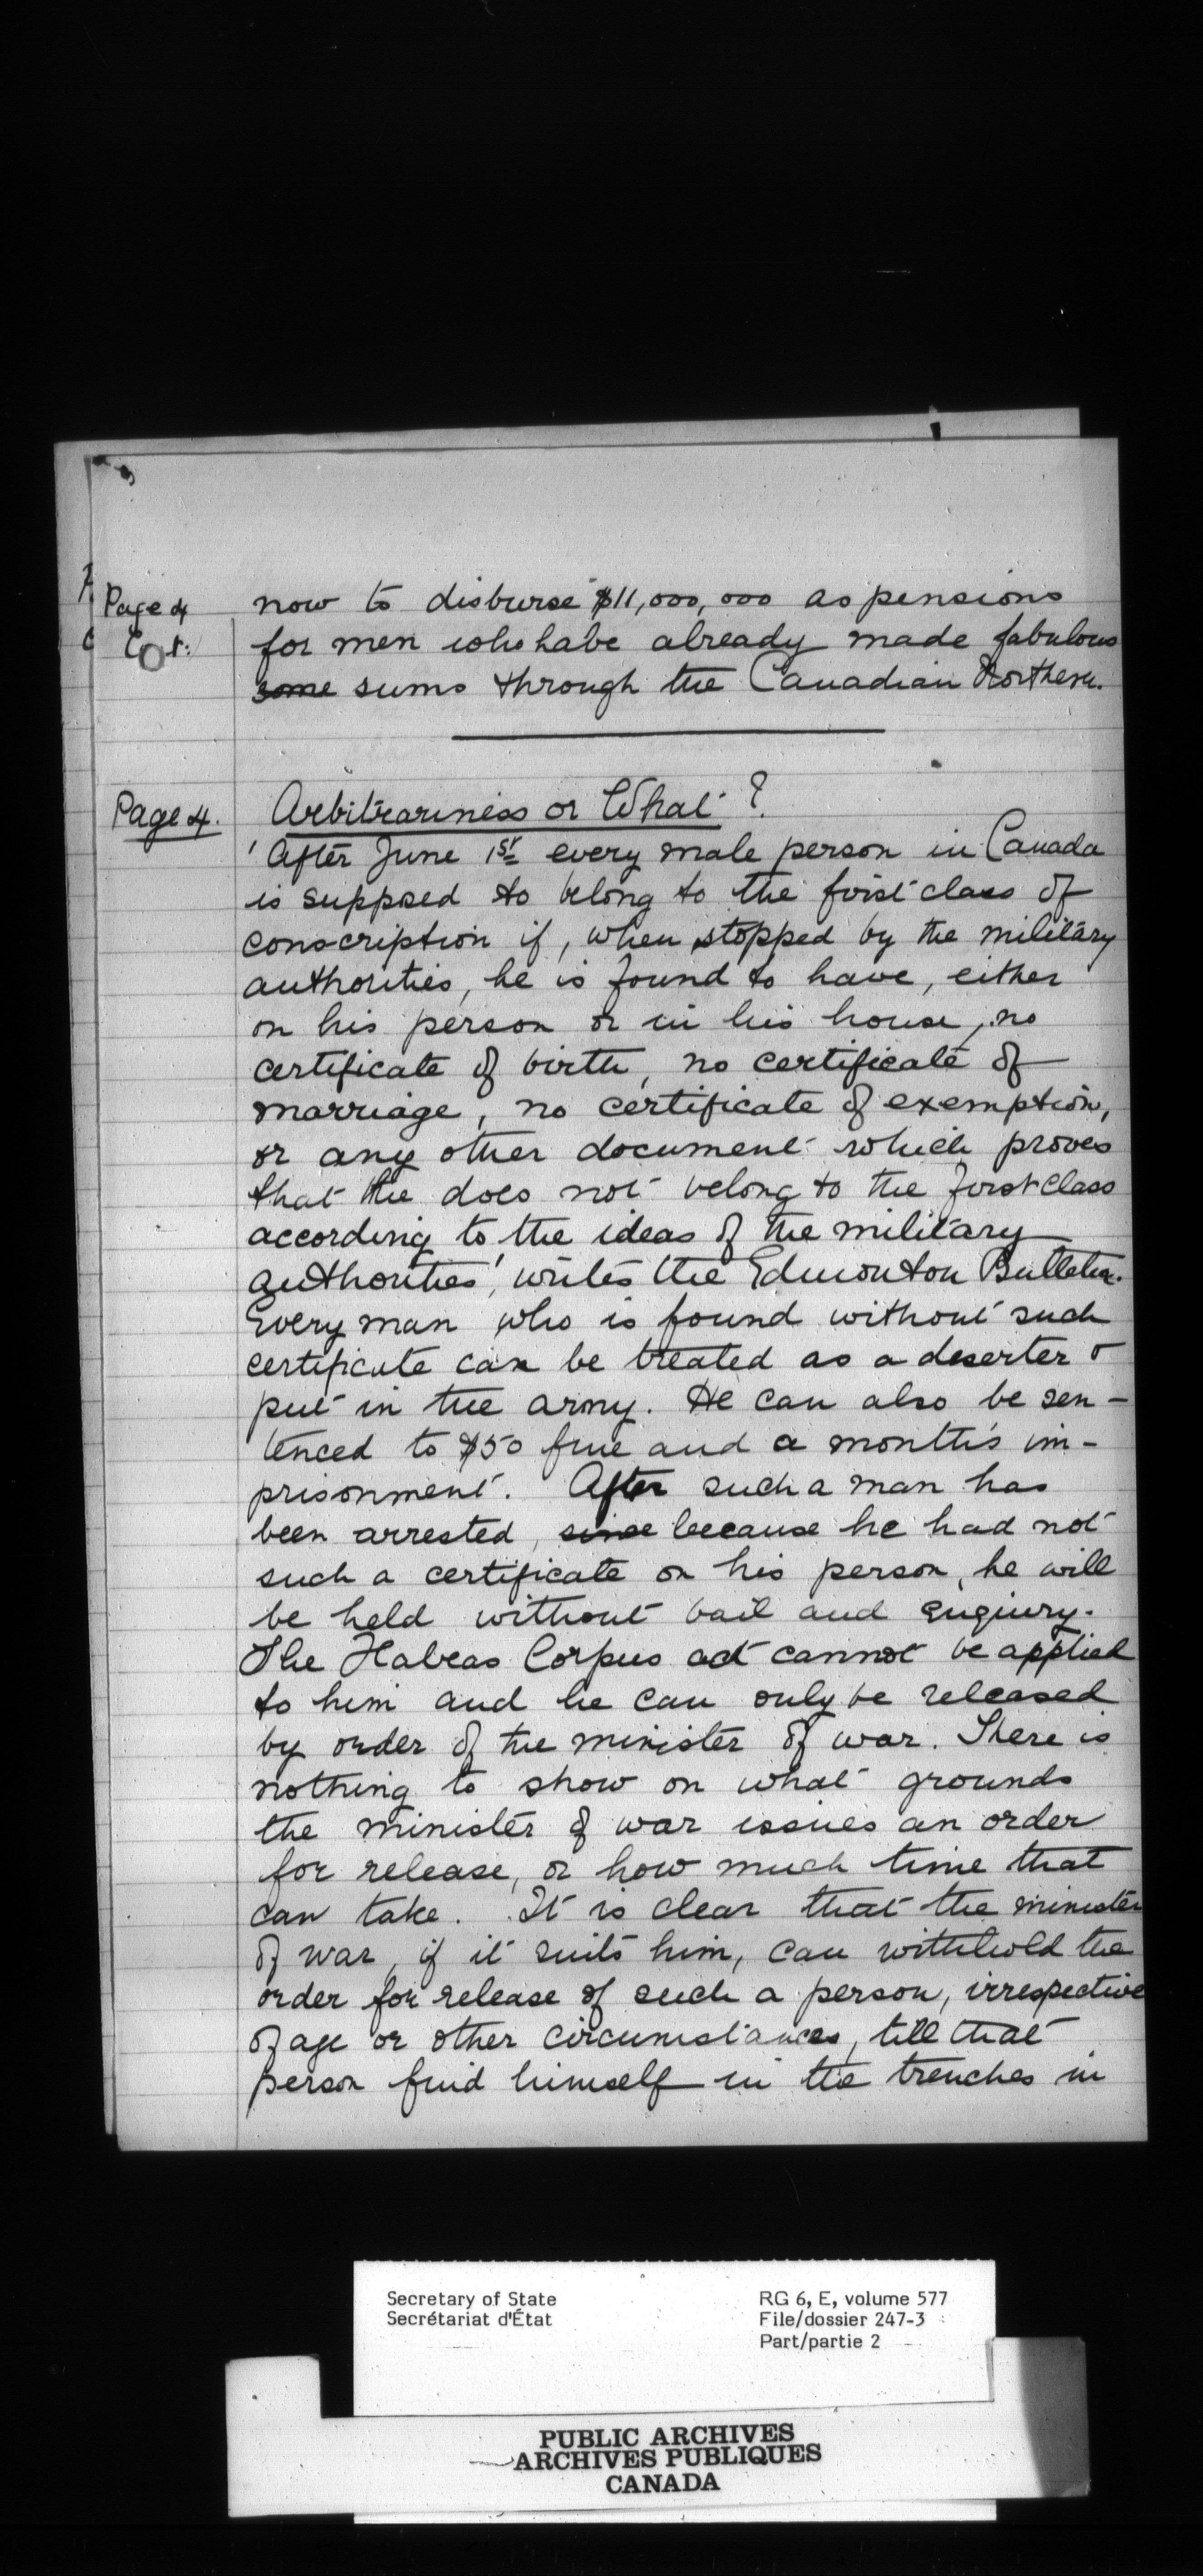 Page 4
Cot:
now to disburse $11,000,000 as pensions
for men who habe already made fabulous
some sums through the Canadian Northern.
Page 4.
Arbitrariness or What?
'After June 1st every male person in Canada
is supposed to belong to the first class of
conscription if, when stopped by the military
authorities, he is found to have, either
on his person or in his house, no
certificate of birth, no certificate of
marriage, no certificate of exemption,
or any other document which proves
that he does not belong to the first class
according to the ideas of the military
authorities', writes the Edmonton Bulletin.
Every man who is found without such
certificate can be treated as a deserter &
put in the army. He can also be sen-
tenced to $50 fine and a month's im-
prisonment. After such a man has
been arrested, since because he had not
such a certificate on his person, he will
be held without bail and enquiry.
The Habeas Corpus act cannot be applied
to him and he can only be released
by order of the minister of war. There is
nothing to show on what grounds
the minister of war issues an order
for release, or how much time that
can take. It is clear that the minister
of war, if it suits him, can withhold the
order for release of such a person, irrespective
of age or other circumstances, till that
person find himself in the trenches in
Secretary of State
Secrétariat d'État
RG 6, E, volume 577
File/dossier 247-3
Part/partie 2
PUBLIC ARCHIVES
ARCHIVES PUBLIQUES
CANADA